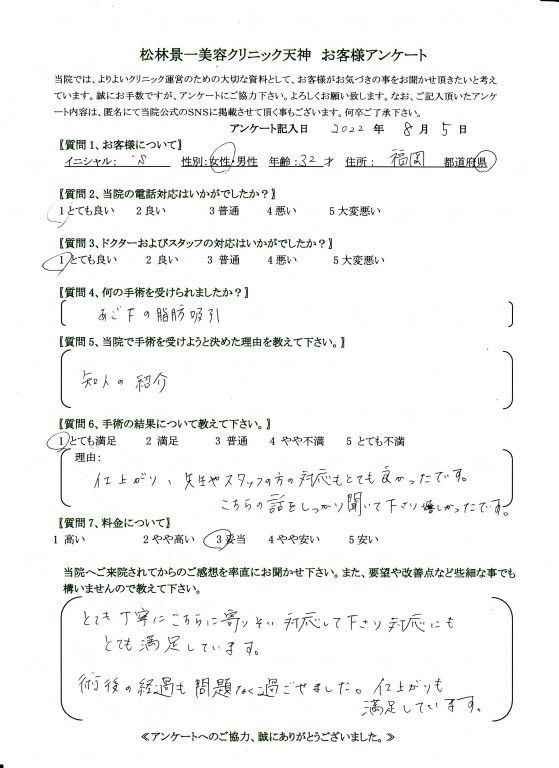 松林景一美容クリニック天神　お客様アンケート
当院では、よりよいクリニック運営のための大切な資料として、お客様がお気づきの事をお聞かせ頂きたいと考え
ています。誠にお手数ですが、アンケートにご協力下さい。よろしくお願い致します。なお、ご記入頂いたアンケ
ート内容は、匿名にて当院公式のSNSに掲載させて頂く事もございます。何卒ご了承下さい。
アンケート記入日　2022 年　8 月　5 日
【質問1、お客様について】
イニシャル：　S　性別：女性・男性　年齢：32 才　住所：　福岡　都道府県
【質問2、当院の電話対応はいかがでしたか？】
1 とても良い　2 良い　3 普通　4 悪い　5 大変悪い
【質問3、ドクターおよびスタッフの対応はいかがでしたか？】
1 とても良い　2 良い　3 普通　4 悪い　5 大変悪い
【質問4、何の手術を受けられましたか？】
あご下の脂肪吸引
【質問5、当院で手術を受けようと決めた理由を教えて下さい。】
知人の紹介
【質問6、手術の結果について教えて下さい。】
1 とても満足　2 満足　3 普通　4 やや不満　5 とても不満
理由：
仕上がり、先生やスタッフの方の対応もとても良かったです。
こちらの話をしっかり聞いて下さり嬉しかったです。
【質問7、料金について】
1 高い　2 やや高い　3 妥当　4 やや安い　5 安い
当院へご来院されてからのご感想を率直にお聞かせ下さい。また、要望や改善点など些細な事でも
構いませんので教えて下さい。
とても丁寧にこちらに寄りそい対応して下さり対応にも
とても満足しています。
術後の経過も問題なく過ごせました。仕上がりも
満足しています。
≪アンケートへのご協力、誠にありがとうございました。≫